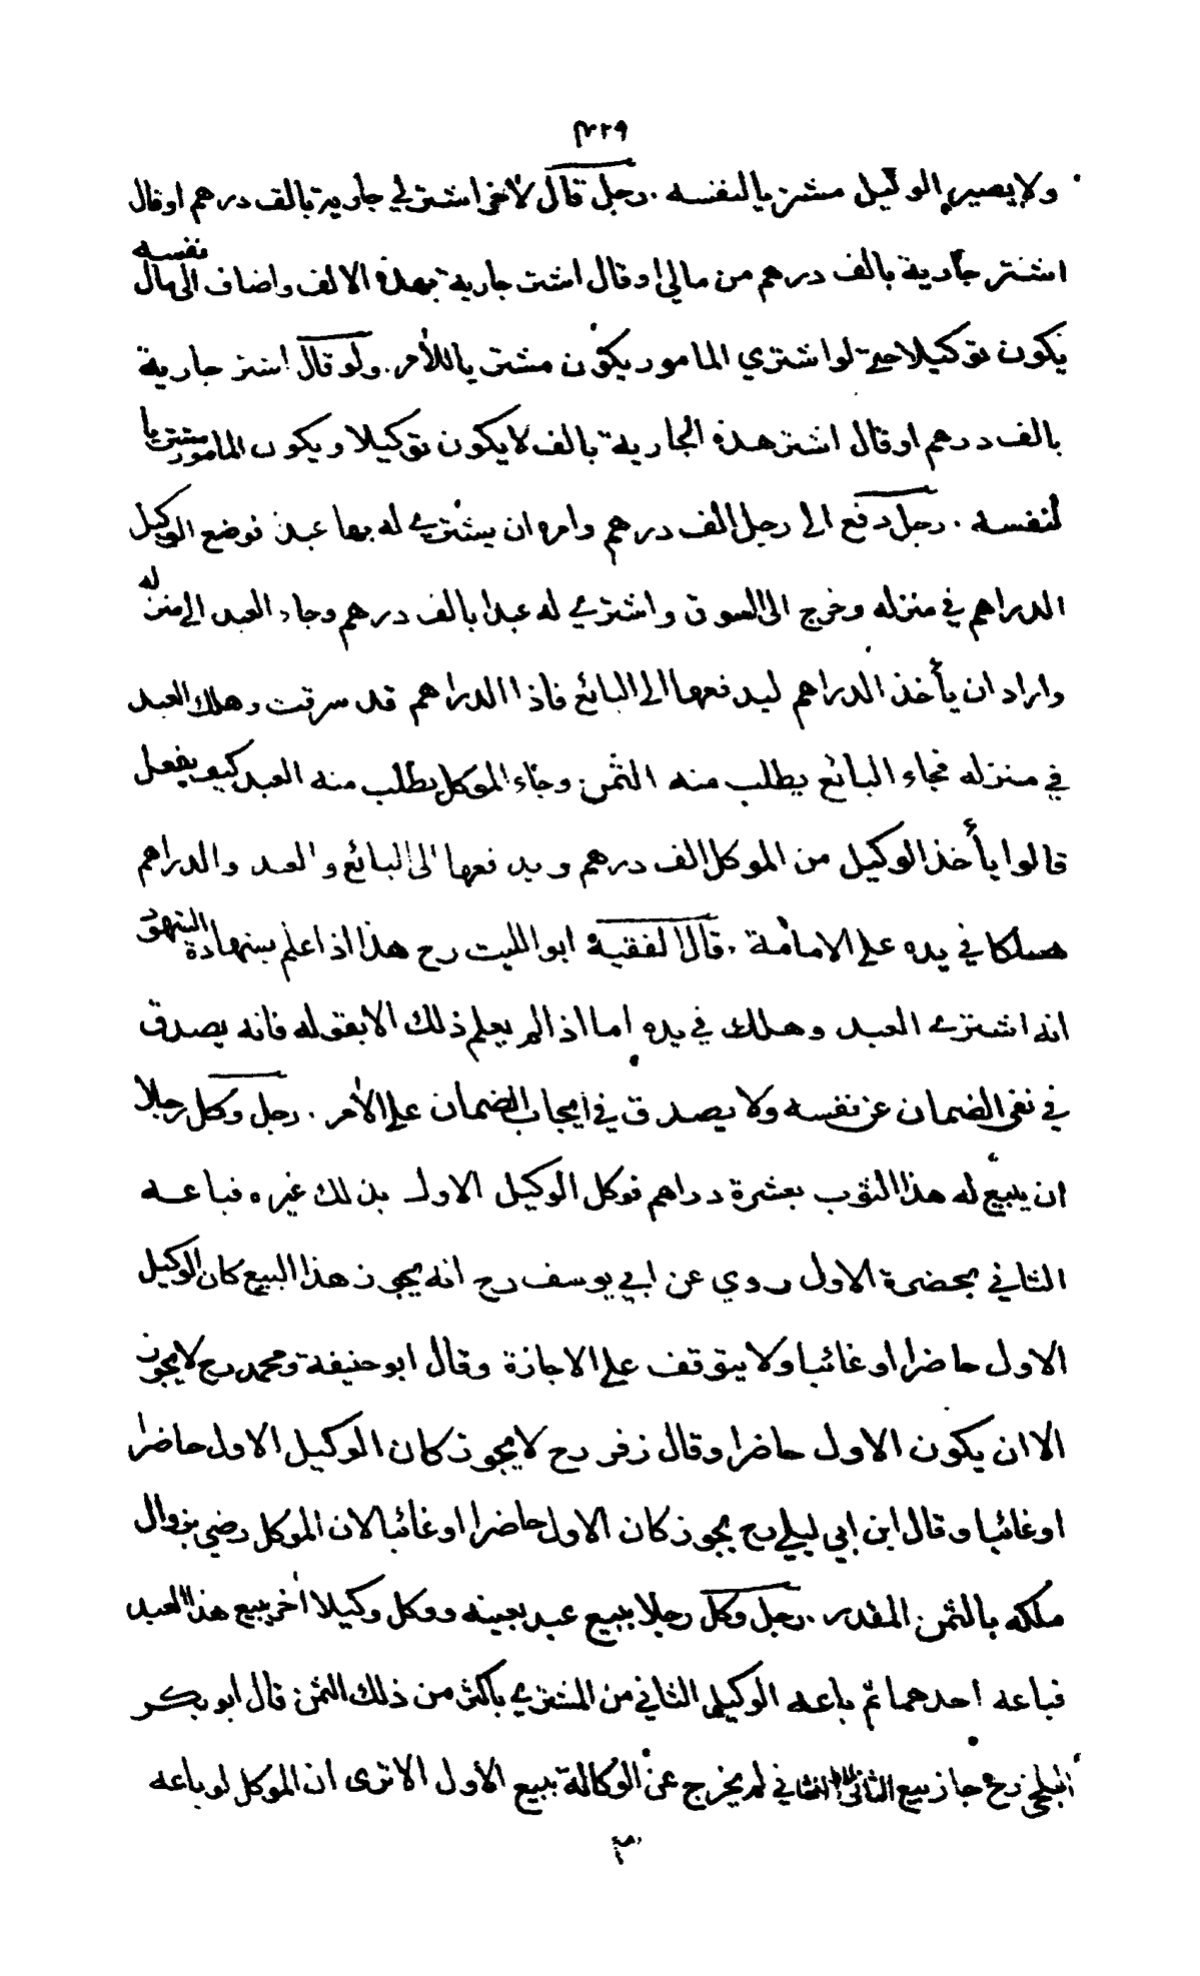 ٣٢٩
ولا يصير الوكيل مشتريا لنفسه . رجل قال لاخر اشتر لي جارية بالف درهم او قال
اشتر جارية بالف درهم من مالي او قال اشتر جارية بهذه الالف واضاف الى مال نفسه
يكون توكيلا حتى لو اشتري المامور يكون مشتريا للأمر . ولو قال اشتر جارية
بالف درهم او قال اشتر هذه الجارية بالف لا يكون توكيلا ويكون المامور مشتريا
لنفسه . رجل دفع الى رجل الف درهم وامره ان يشتري له بها عبد فوضع الوكيل
الدراهم في منزله وخرج الى السوق واشتري له عبدا بالف درهم وجاء العبد الى منزله
واراد ان يأخذ الدراهم ليدفعها الى البائع فاذا الدراهم قد سرقت وهلك العبد
في منزله فجاء البائع يطلب منه الثمن وجاء الموكل يطلب منه العبد كيف يفعل
قالوا يأخذ الوكيل من الموكل الف درهم ويدفعها الى البائع والعبد والدراهم
هلكا في يده على الامانة . قال الفقيه ابو الليث رح هذا اذا علم بشهادة الشهود
انه اشتري العبد وهلك في يده اما اذا لم يعلم ذلك الا بقوله فانه يصدق
في نفي الضمان عن نفسه ولا يصدق في ايجاب الضمان على الأمر . رجل وكل رجلا
ان يبيع له هذا الثوب بعشرة دراهم فوكل الوكيل الاول بذلك غيره فباعه
الثاني بحضرة الاول روي عن ابي يوسف رح انه يجوز هذا البيع كان الوكيل
الاول حاضرا او غائبا ولا يتوقف على الاجازة وقال ابو حنيفة ومحمد رح لا يجوز
الا ان يكون الاول حاضرا وقال زفر رح لا يجوز كان الوكيل الاول حاضرا
او غائبا وقال ابن ابي ليلى رح يجوز كان الاول حاضرا او غائبا لان الموكل رضي بزوال
ملكه بالثمن المقدر . رجل وكل رجلا ببيع عبد بعينه ووكل وكيلا أخر ببيع هذا العبد
فباعه احدهما ثم باعه الوكيل الثاني من المشتري باكثر من ذلك الثمن قال ابو بكر
البلخي رح جاز بيع الثاني لان الثاني لم يخرج عن الوكالة ببيع الاول الا ترى ان الموكل لو باعه